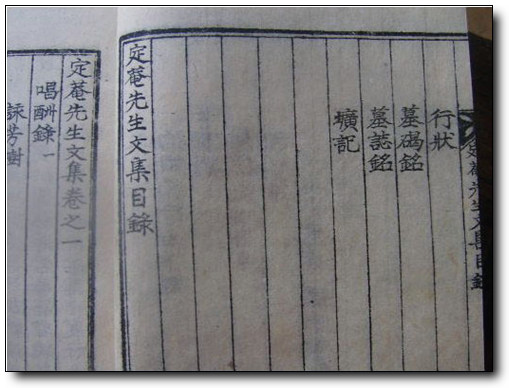 定菴先生文集目錄
行狀
墓碣銘
墓誌銘
壙記
定菴先生文集目錄
定菴先生文集卷之一
唱酬錄一
詠芳樹